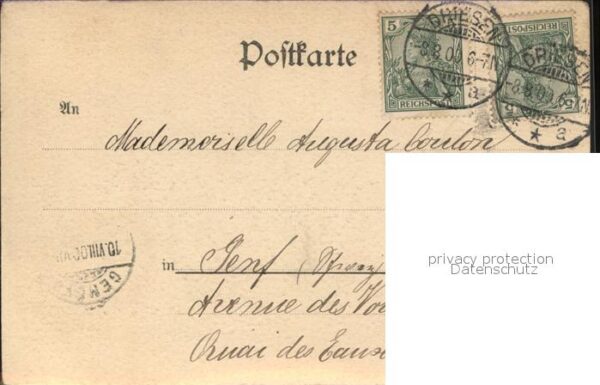 Postkarte
5
REICHSPOST
REICHSPOST
5
DRESDEN
-8.8.00 6-7N
* a
DRESDEN
-8.8.00 6-7N
* a
An
Mademoiselle Augusta Coulon
10.VIII.00
in Genf (Schweiz
Avenue des
Quai des Eaux
privacy protection
Datenschutz